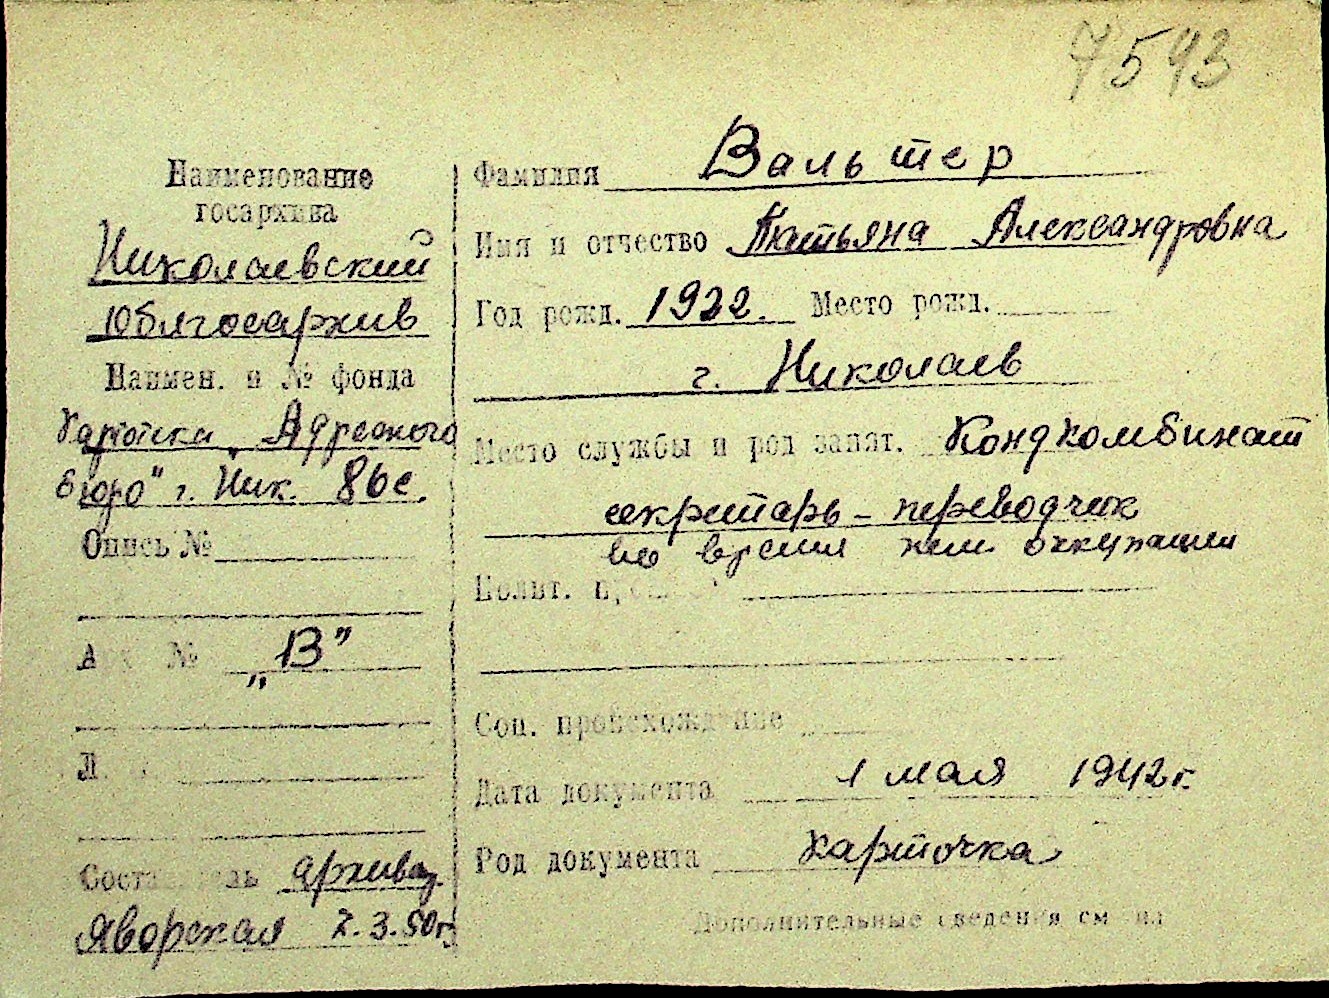 7593
Наименование
госархива
Николаевский
Облгосархив
Наимен. и № фонда
Картотека „Адресного
бюро" г. Ник. 86с.
Опись №
Арх №
„В"
Л.
Составитель архивар.
Яворская 2.3.50г.
Фамилия Вальтер
Имя и отчество Татьяна Александровна
Год рожд. 1922. Место рожд.
г. Николаев
Место службы и род занят. Кондкомбинат
секретарь - переводчик
во время нем оккупации
Полит.
Соц. происхождение
Дата документа 1 мая 1942г.
Род документа карточка
Дополнительные сведения см на